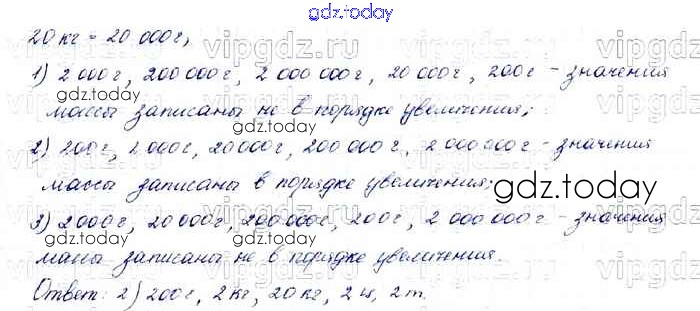 gdz.today
20 кг = 20 000 г;
1) 2 000 г, 200 000 г, 2 000 000 г, 20 000 г, 200 г - значения
массы записаны не в порядке увеличения;
2) 200 г, 2 000 г, 20 000 г, 200 000 г, 2 000 000 г - значения
массы записаны в порядке увеличения;
gdz.today
3) 2 000 г, 20 000 г, 200 000 г, 200 г, 2 000 000 г - значения
массы записаны не в порядке увеличения.
Ответ: 2) 200 г, 2 кг, 20 кг, 2 ц, 2 т.